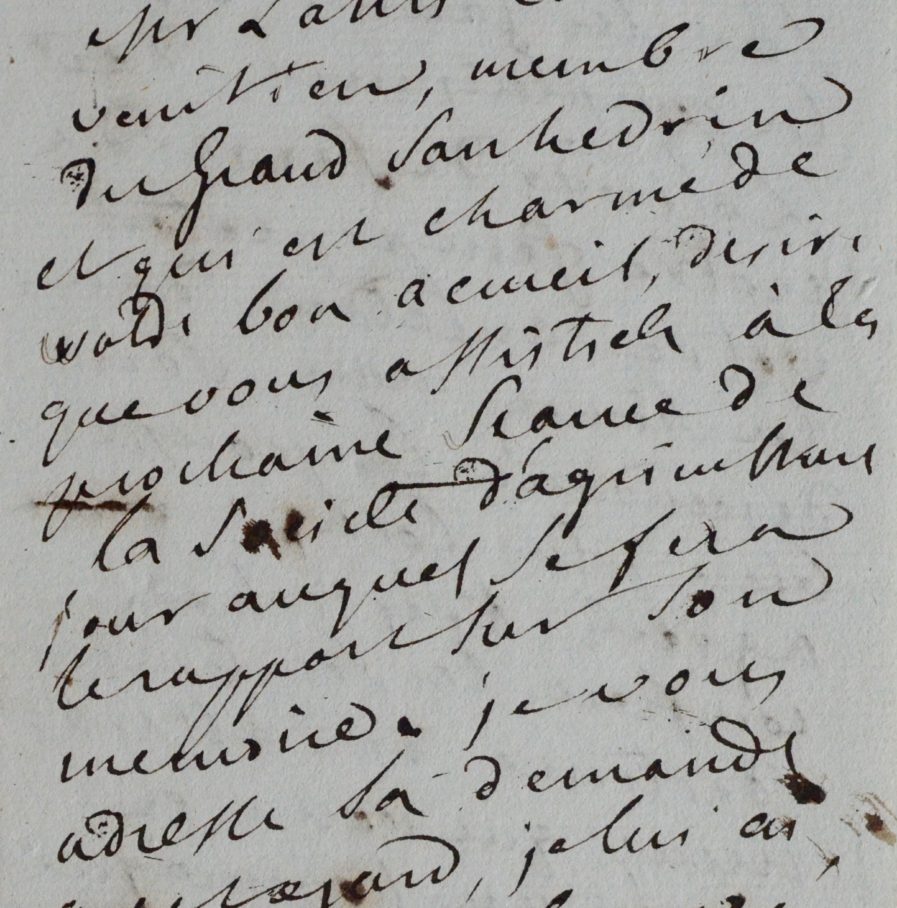 Mr
venitien, membre
du Grand Sanhedrin
et qui est charmé de
votre bon acceuil, desire
que vous assistiez à la
prochaine seance de
la Societé d'agriculture
jour auquel se fera
le rapport sur son
memoire. je vous
adresse sa demande
egard, je lui ai